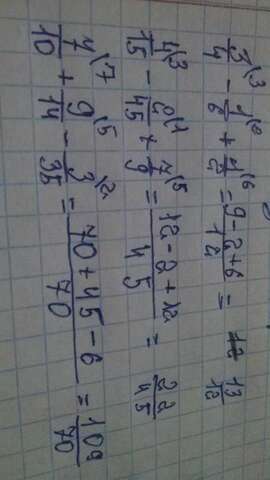 3/4\3 - 1/6\2 + 1/2\6 = 9-2+6/12 = 13/12
4/15\3 - 2/45\1 + /9\5 = 12-2+12/45 = 22/45
/10\7 + 9/14\5 - 3/35\2 = 70+45-6/70 = 109/70